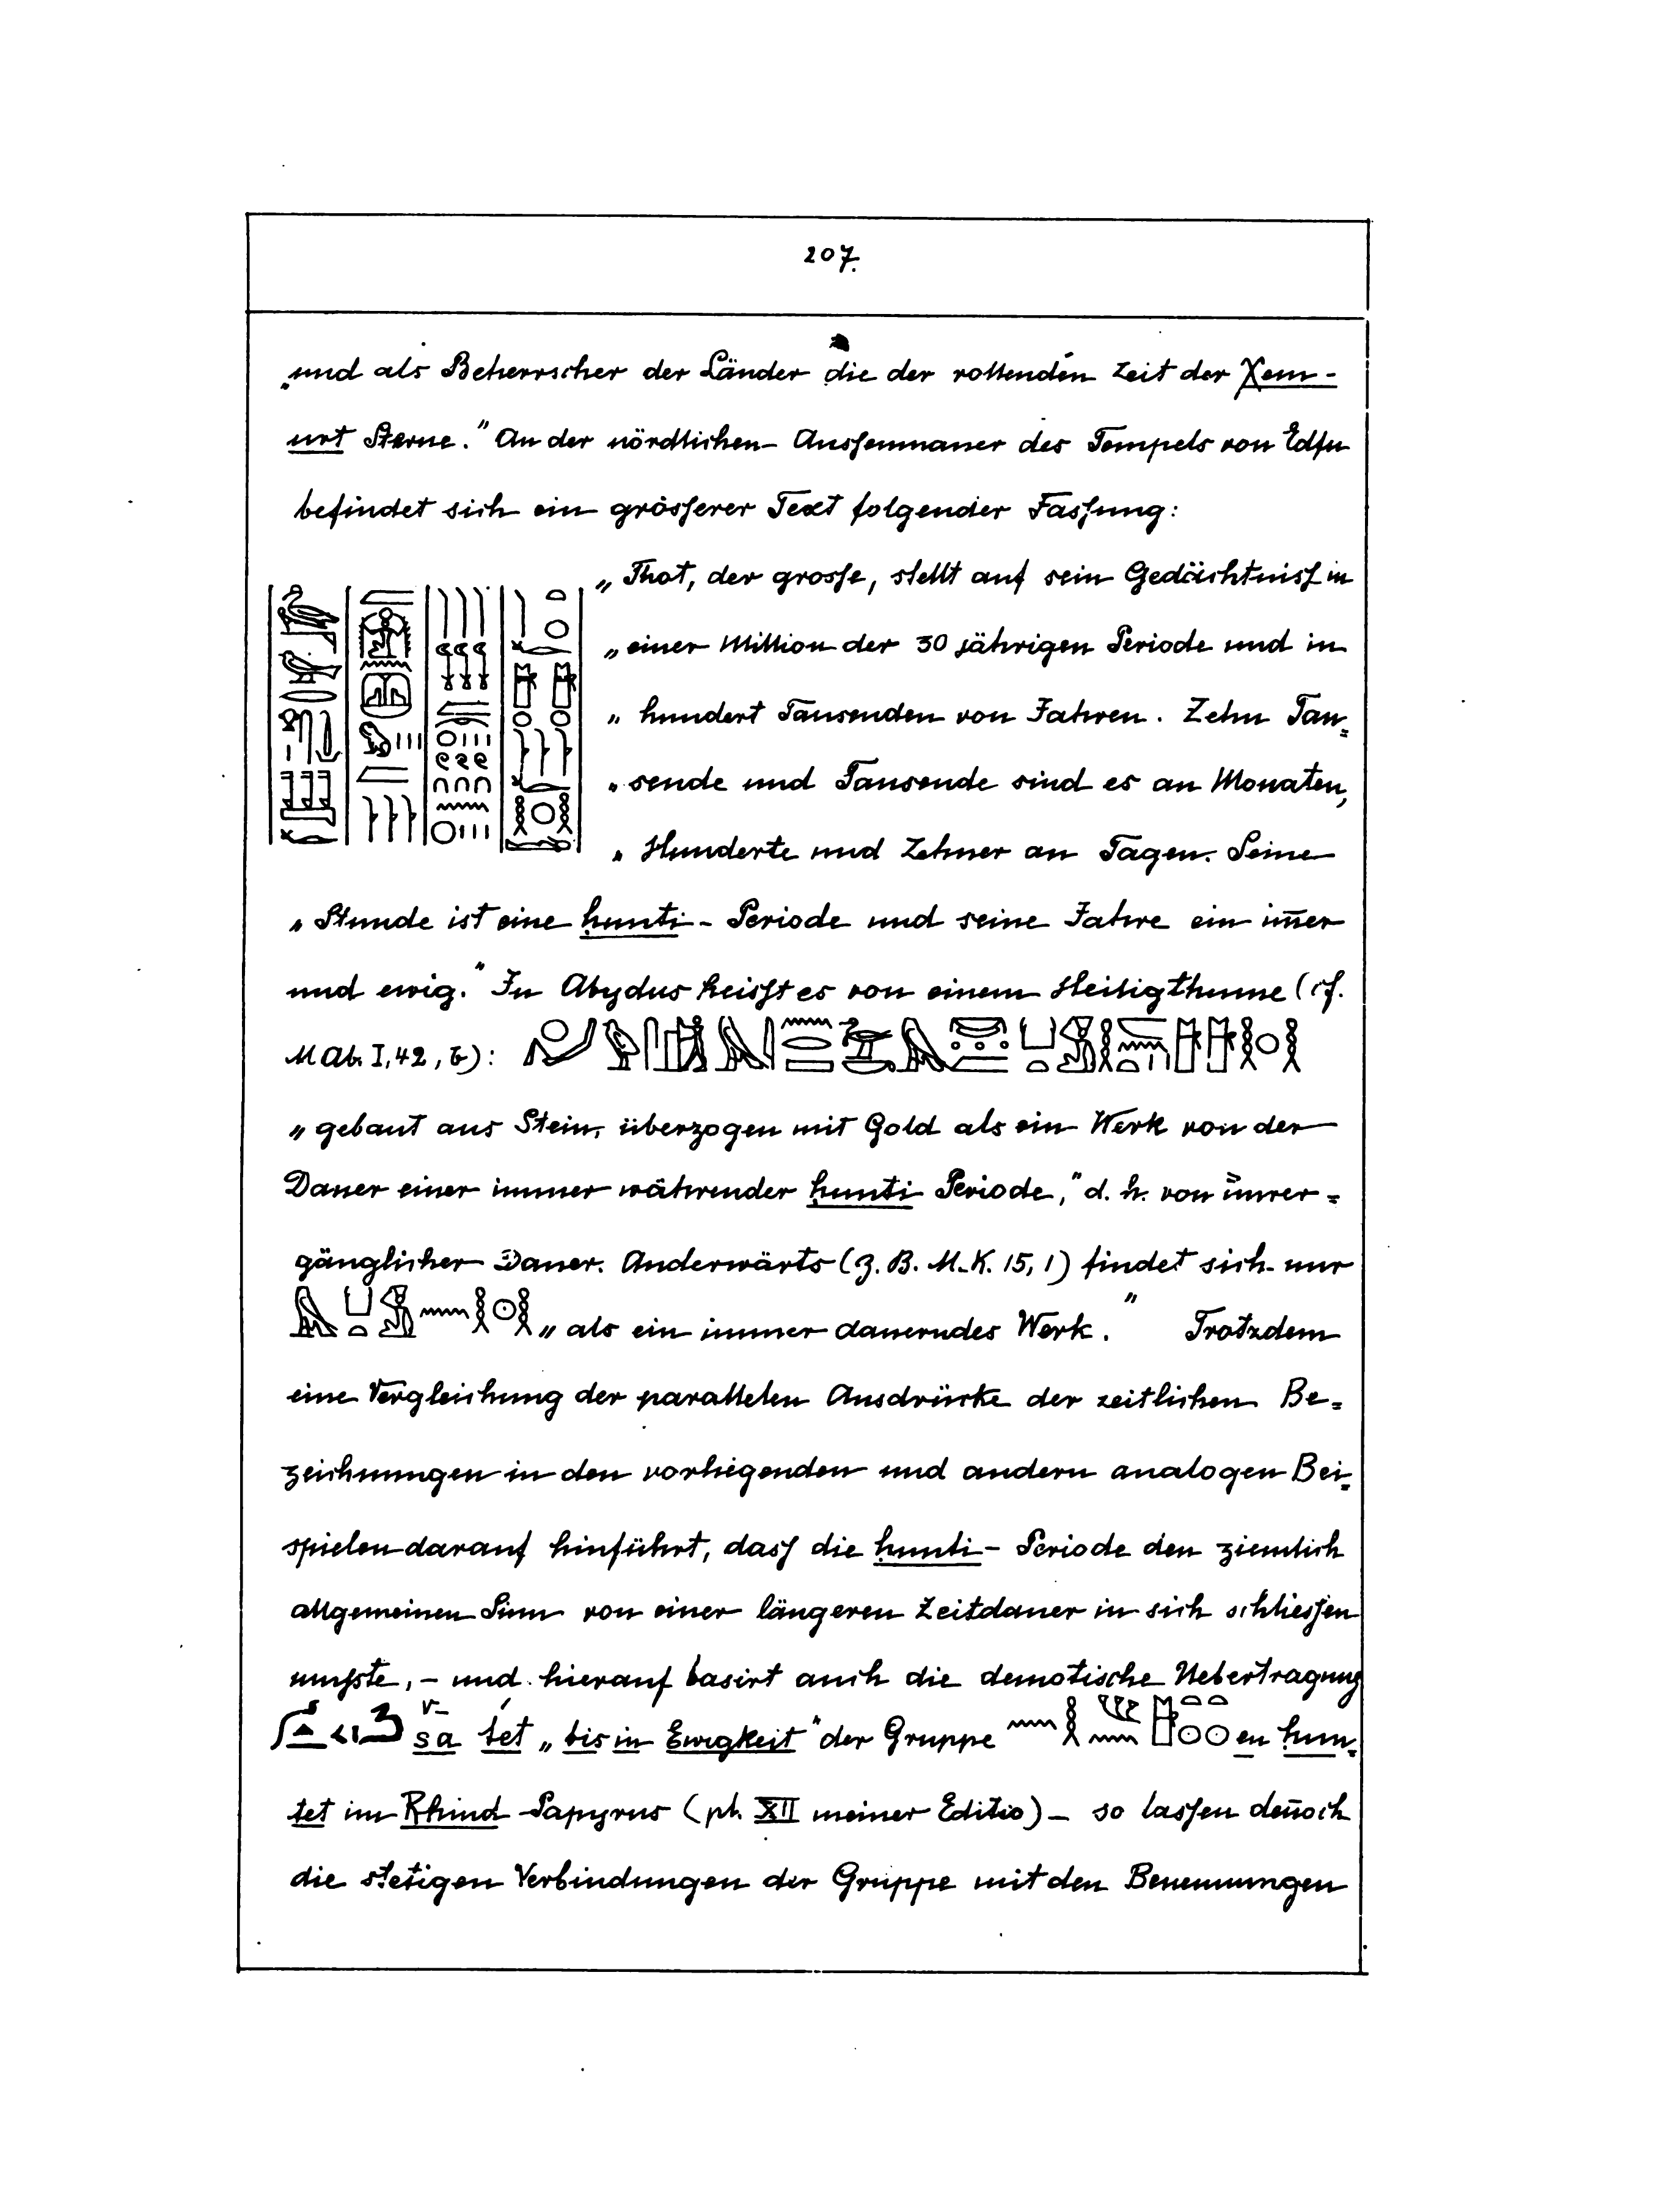 207.
„und als Beherrscher der Länder die der rollenden Zeit der Xem-
urt Sterne." An der nördlichen Aussenmauer des Tempels von Edfu
befindet sich ein grösserer Text folgender Fassung:
„Thot, der grosse, stellt auf sein Gedächtniss in
„einer Million der 30 jährigen Periode und in
„hundert Tausenden von Jahren. Zehn Tau=
„sende und Tausende sind es an Monaten,
„Hunderte und Zehner an Tagen. Seine
„Stunde ist eine ḥunti-Periode und seine Jahre ein im̄er
und ewig." In Abydus heisst es von einem Heiligthume (cf.
M Ab. I, 42, b):
„gebaut aus Stein, überzogen mit Gold als ein Werk von der
Dauer einer immer währender ḥunti Periode," d. h. von unver=
gänglicher Dauer. Anderwärts (z. B. M.K. 15, 1) findet sich nur
„als ein immer dauerndes Werk." Trotzdem
eine Vergleichung der parallelen Ausdrücke der zeitlichen Be=
zeichnungen in den vorliegenden und andern analogen Bei=
spielen darauf hinführt, dass die ḥunti-Periode den ziemlich
allgemeinen Sinn von einer längeren Zeitdauer in sich schliessen
musste, – und hierauf basirt auch die demotische Uebertragung
sa tet „bis in Ewigkeit" der Gruppe en ḥun=
tet im Rhind Papyrus (pl. XII meiner Editio) – so lassen den̄och
die stetigen Verbindungen der Gruppe mit den Benennungen